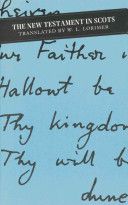 THE NEW TESTAMENT IN SCOTS
TRANSLATED BY W. L. LORIMER
Faither
Hallout be
Thy kingdom
Thy will be
dune